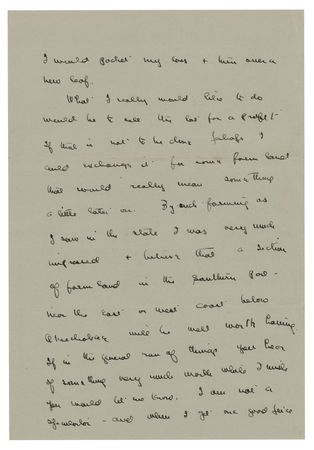 I would pocket my loss & turn over a
new leaf.
What I really would like to do
would be to sell this lot for a profit
If this is not to be done perhaps I
could exchange it for some farm land
that would really mean something
a little later on. By such farming as
I saw in the state I was very much
impressed & believe that a section
of farm land in the Southern part
near the East or West coast below
Okechobee will be well worth having.
If in the general run of things you hear
of something very much worth while I wish
you would let me know. I am not a
- and when I get one good size